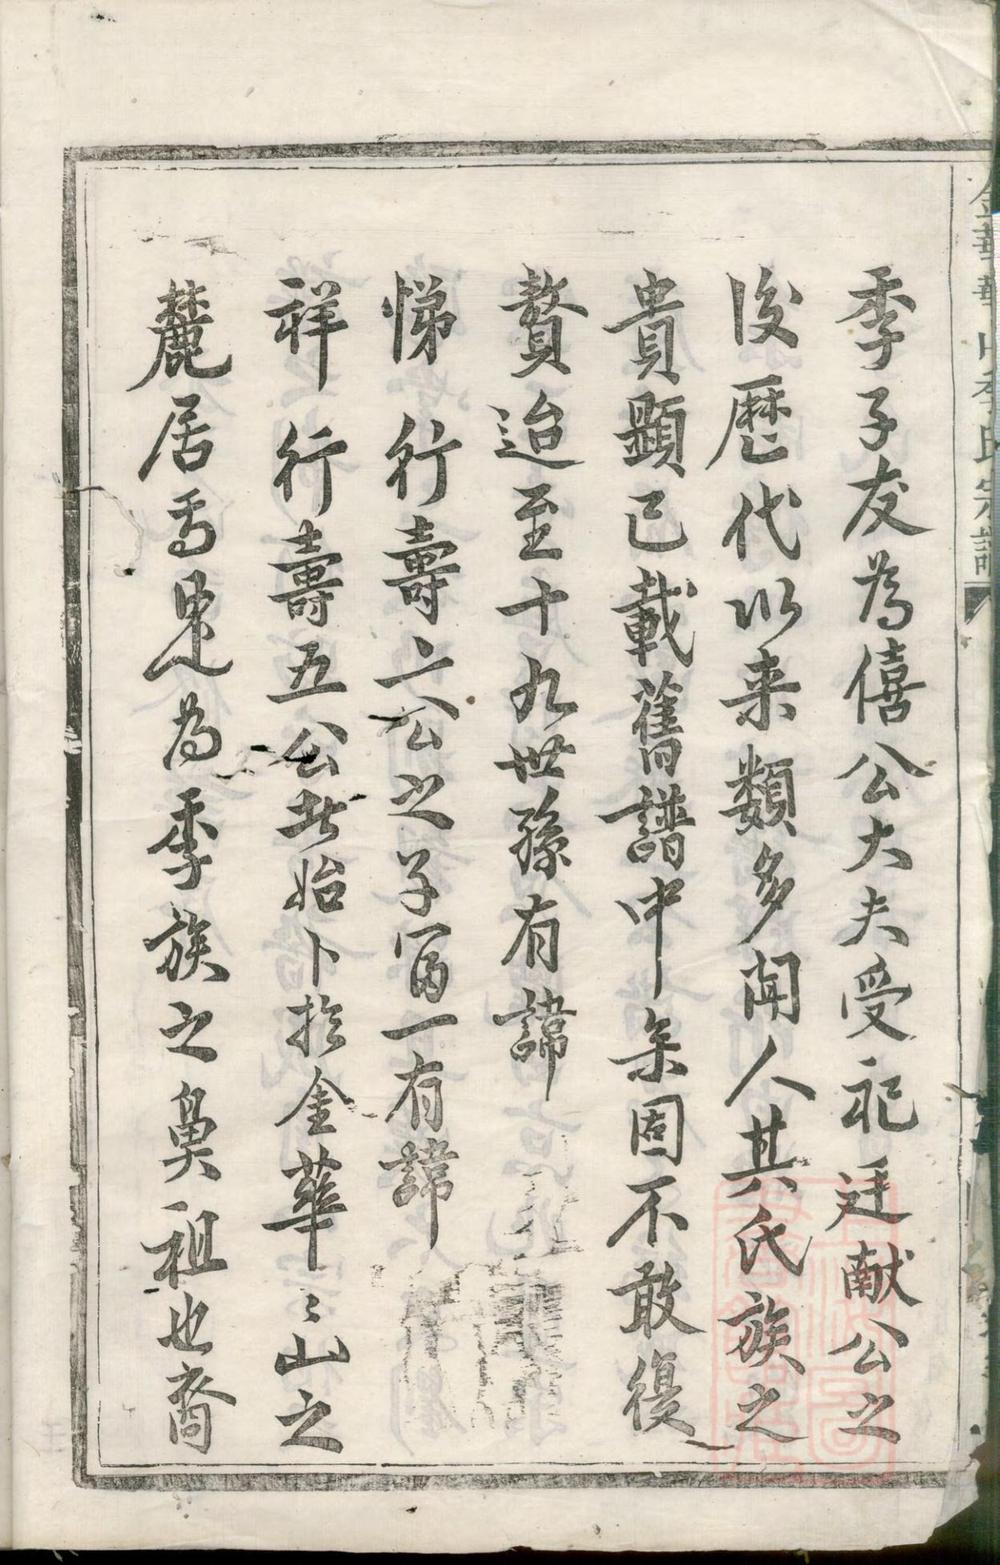 季子友為僖公大夫受祀廷献公之
後歷代以来類多聞人其氏族之
貴顯已載舊譜中矣固不敢復
贅迨至十九世孫有諱
悌行壽六公之子富一有諱
祥行壽五公者始卜於金華〻山之
麓居焉是為季族之鼻祖也裔
金華華山季氏宗譜